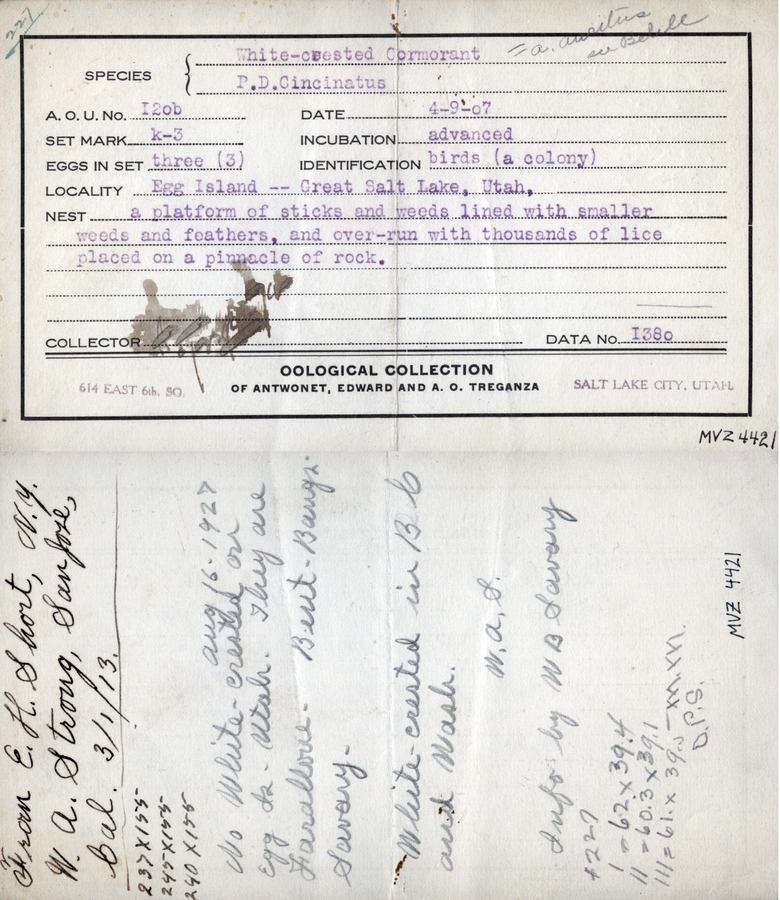 227
= a. auritus
see Belle
White-crested Cormorant
SPECIES
P.D.Cincinatus
A. O. U. No. I2ob DATE 4-9-o7
SET MARK k-3 INCUBATION advanced
EGGS IN SET three (3) IDENTIFICATION birds (a colony)
LOCALITY Egg Island -- Great Salt Lake, Utah,
NEST a platform of sticks and weeds lined with smaller
weeds and feathers, and over-run with thousands of lice
placed on a pinnacle of rock.
COLLECTOR DATA No. I38o
OOLOGICAL COLLECTION
614 EAST 6th. SO. OF ANTWONET, EDWARD AND A. O. TREGANZA SALT LAKE CITY, UTAH
MVZ 4421
From E. H. Short, N.Y.
W. A. Strong, San Jose,
Cal. 3/1/13.
237X155
245X155
240X155
Aug 16-1927
No White-crested on
Egg Is- Utah. They are
Farallone- Bent-Bangs.
Savary-
White-crested in B C
and Wash.
W.A.S.
Info by W B Savary
#227
I = 62 x 39.4
II = 60.3 x 39.1
III = 61. x 39.5 m.m.
D.P.S.
MVZ 4421